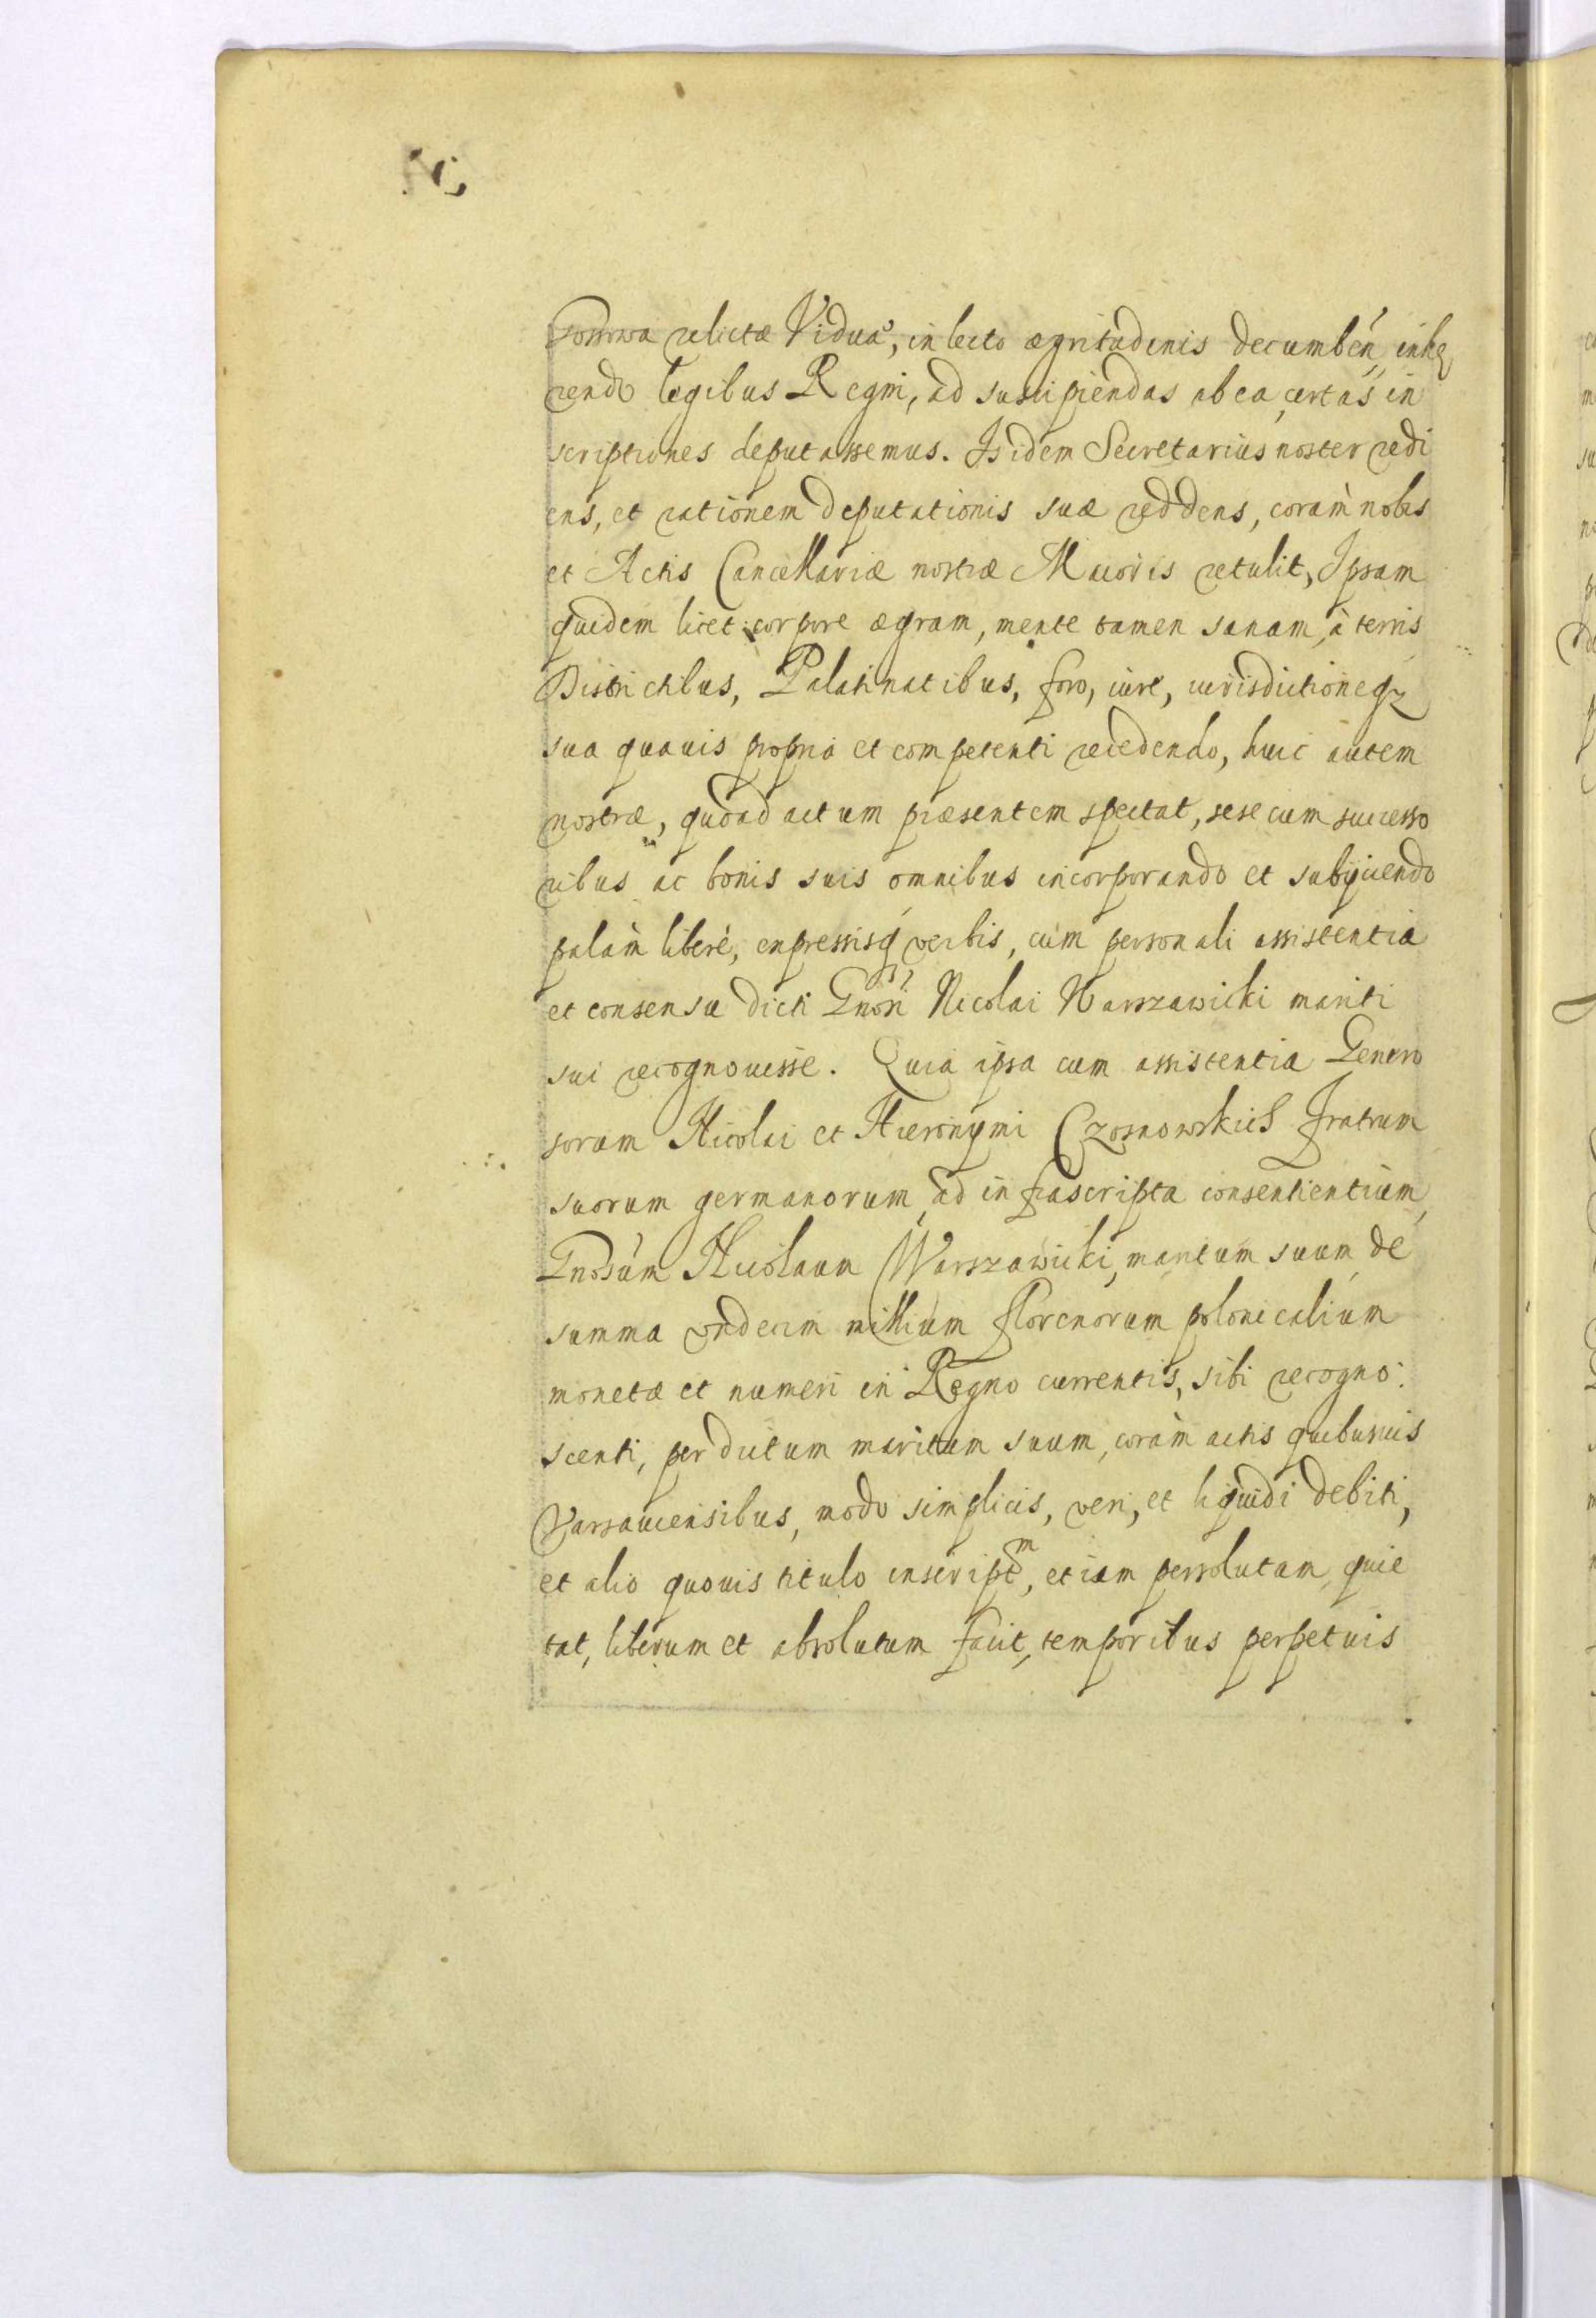 relictæ Viduæ, in lecto ægritudinis decumbeń, inhę
rendo legibus Regni, ad suscipiendas ab ea, certas in
scriptiones deputassemus. Is idem Secretarius noster redi
ens, et rationem deputationis suæ reddens, coràm nobis
et Actis Cancellariæ nostræ Maioris retulit, Ipsam
quidem licet corpore ægram, mente tamen sanam, à terris
Districtibus, Palatinatibus, foro, iure, iurisdictioneqz
sua quauis propria et competenti recedendo, huic autem
nostræ, quoad actum præsentem spectat, sese cum successo
ribus ac bonis suis omnibus incorporando et subijciendo
palàm liberè, expressisq́ verbis, cum personali assistentia
et consensu dicti Gnosi Nicolai Warszawicki mariti
sui recognouisse. Quia ipsa cum assistentia Genero
sorum Nicolai et Hieronymi Czosnowskich Fratrum
suorum germanorum, ad infrascripta consentientium,
Gnosum Nicolaum Warszawicki, maritum suum, de
summa vndecim millium florenorum polonicalium
monetæ et numeri in Regno currentis, sibi recogno:
scenti, per dictum maritum suum, coràm actis quibusuis
Varsauiensibus, modo simplicis, veri, et liquidi debiti,
et alio quouis titulo inscriptm, et iam persolutam, quie
tat, liberum et absolutum facit, temporibus perpetuis